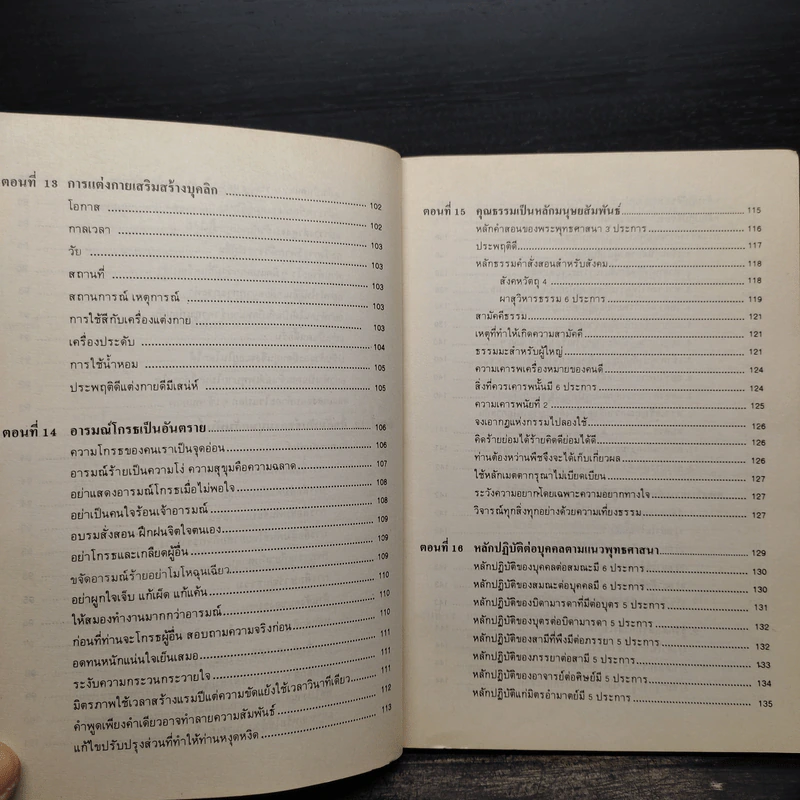 ตอนที่ 13 การแต่งกายเสริมสร้างบุคลิก
โอกาส 102
กาลเวลา 102
วัย 103
สถานที่ 103
สถานการณ์ เหตุการณ์ 103
การใช้สีกับเครื่องแต่งกาย 103
เครื่องประดับ 104
การใช้น้ำหอม 105
ประพฤติดีแต่งกายดีมีเสน่ห์ 105
ตอนที่ 14 อารมณ์โกรธเป็นอันตราย 106
ความโกรธของคนเราเป็นจุดอ่อน 106
อารมณ์ร้ายเป็นความโง่ ความสุขุมคือความฉลาด 107
อย่าแสดงอารมณ์โกรธเมื่อไม่พอใจ 108
อย่าเป็นคนใจร้อนเจ้าอารมณ์ 108
อบรมสั่งสอน ฝึกฝนจิตใจตนเอง 109
อย่าโกรธและเกลียดผู้อื่น 109
ขจัดอารมณ์ร้ายอย่าโมโหฉุนเฉียว 109
อย่าผูกใจเจ็บ แก้เผ็ด แก้แค้น 110
ให้สมองทำงานมากกว่าอารมณ์ 110
ก่อนที่ท่านจะโกรธผู้อื่น สอบถามความจริงก่อน 110
อดทนหนักแน่นใจเย็นเสมอ 111
ระงับความกระวนกระวายใจ 111
มิตรภาพใช้เวลาสร้างแรมปีแต่ความขัดแย้งใช้เวลาวินาทีเดียว 111
คำพูดเพียงคำเดียวอาจทำลายความสัมพันธ์ 112
แก้ไขปรับปรุงส่วนที่ทำให้ท่านหงุดหงิด 113
ตอนที่ 15 คุณธรรมเป็นหลักมนุษยสัมพันธ์ 115
หลักคำสอนของพระพุทธศาสนา 3 ประการ 116
ประพฤติดี 117
หลักธรรมคำสั่งสอนสำหรับสังคม 118
สังคหวัตถุ 4 118
ผาสุวิหารธรรม 6 ประการ 119
สามัคคีธรรม 121
เหตุที่ทำให้เกิดความสามัคคี 121
ธรรมมะสำหรับผู้ใหญ่ 121
ความเคารพเครื่องหมายของคนดี 124
สิ่งที่ควรเคารพนั้นมี 6 ประการ 124
ความเคารพนัยที่ 2 125
จงเอากฎแห่งกรรมไปลองใช้ 126
คิดร้ายย่อมได้ร้ายคิดดีย่อมได้ดี 126
ท่านต้องหว่านพืชจึงจะได้เก็บเกี่ยวผล 126
ใช้หลักเมตตากรุณาไม่เบียดเบียน 127
ระวังความอยากโดยเฉพาะความอยากทางใจ 127
วิจารณ์ทุกสิ่งทุกอย่างด้วยความเที่ยงธรรม 127
ตอนที่ 16 หลักปฏิบัติต่อบุคคลตามแนวพุทธศาสนา 129
หลักปฏิบัติของบุคคลต่อสมณะมี 6 ประการ 130
หลักปฏิบัติของสมณะต่อบุคคลมี 6 ประการ 130
หลักปฏิบัติของบิดามารดาที่มีต่อบุตร 5 ประการ 131
หลักปฏิบัติของบุตรต่อบิดามารดา 5 ประการ 132
หลักปฏิบัติของสามีที่พึงมีต่อภรรยา 5 ประการ 132
หลักปฏิบัติของภรรยาต่อสามี 5 ประการ 133
หลักปฏิบัติของอาจารย์ต่อศิษย์มี 5 ประการ 134
หลักปฏิบัติแก่มิตรอำมาตย์มี 5 ประการ 135